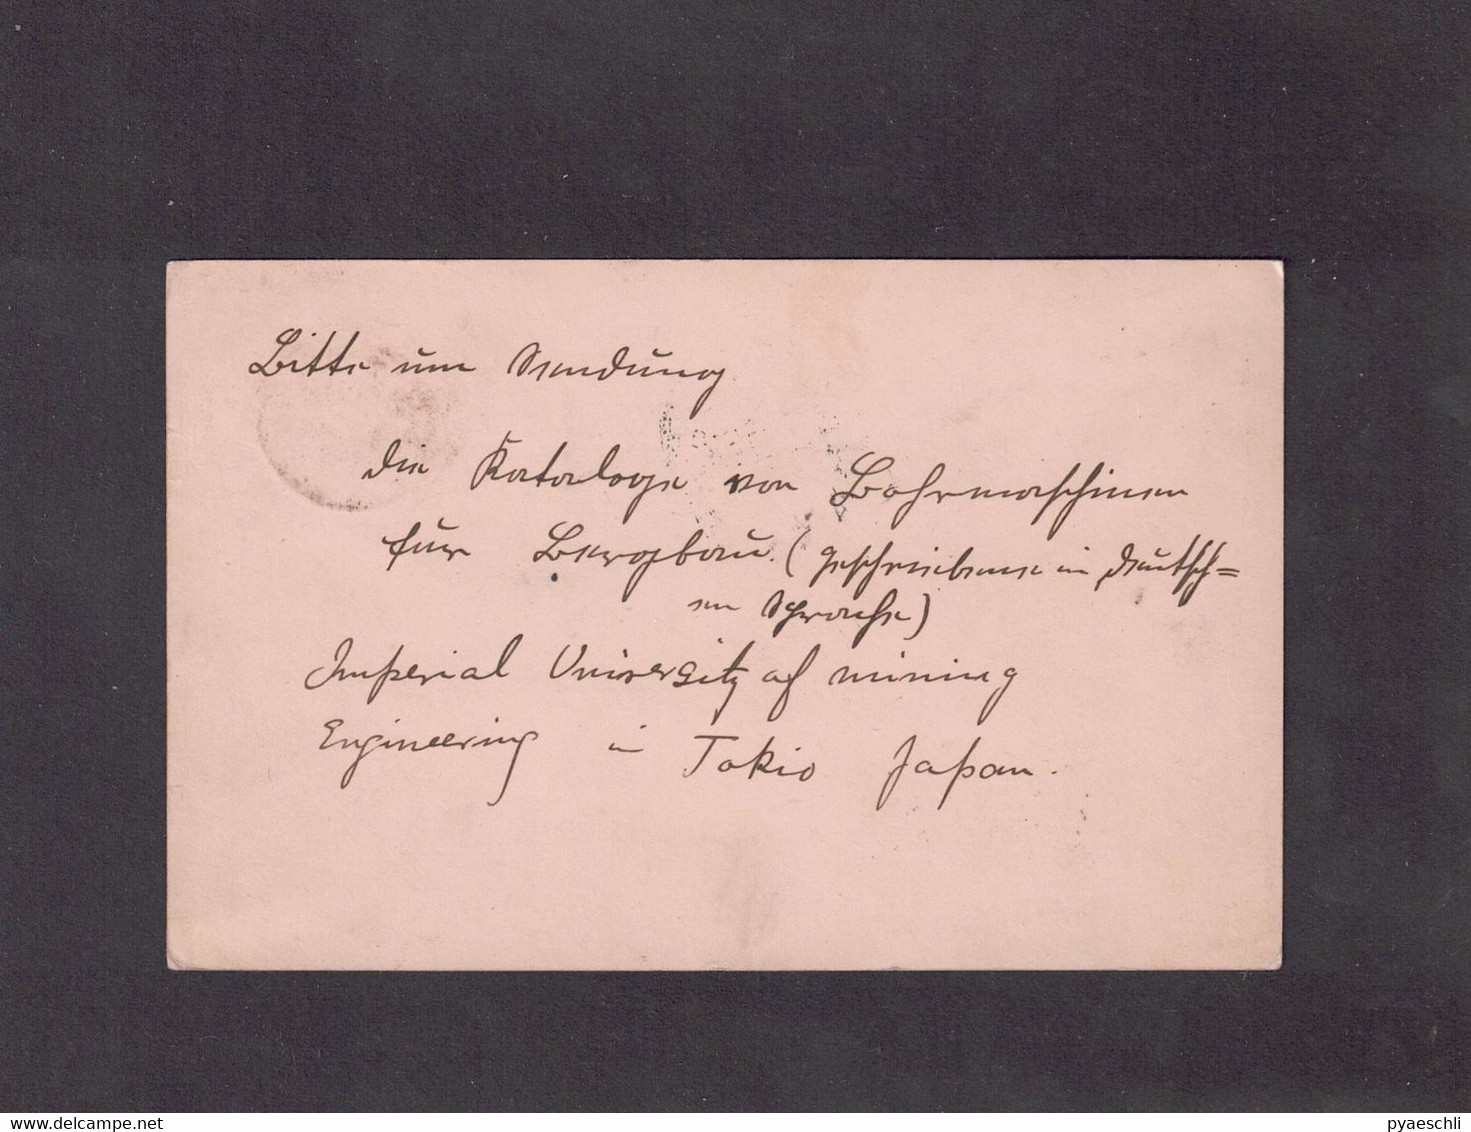 Bitte um Sendung
die Kataloge von Bohrmaschinen
für Bergbau. (geschriebene in Deutsch=
en Sprache)
Imperial University of mining
Engineering in Tokio Japan.
www.delcampe.net
pyaeschli